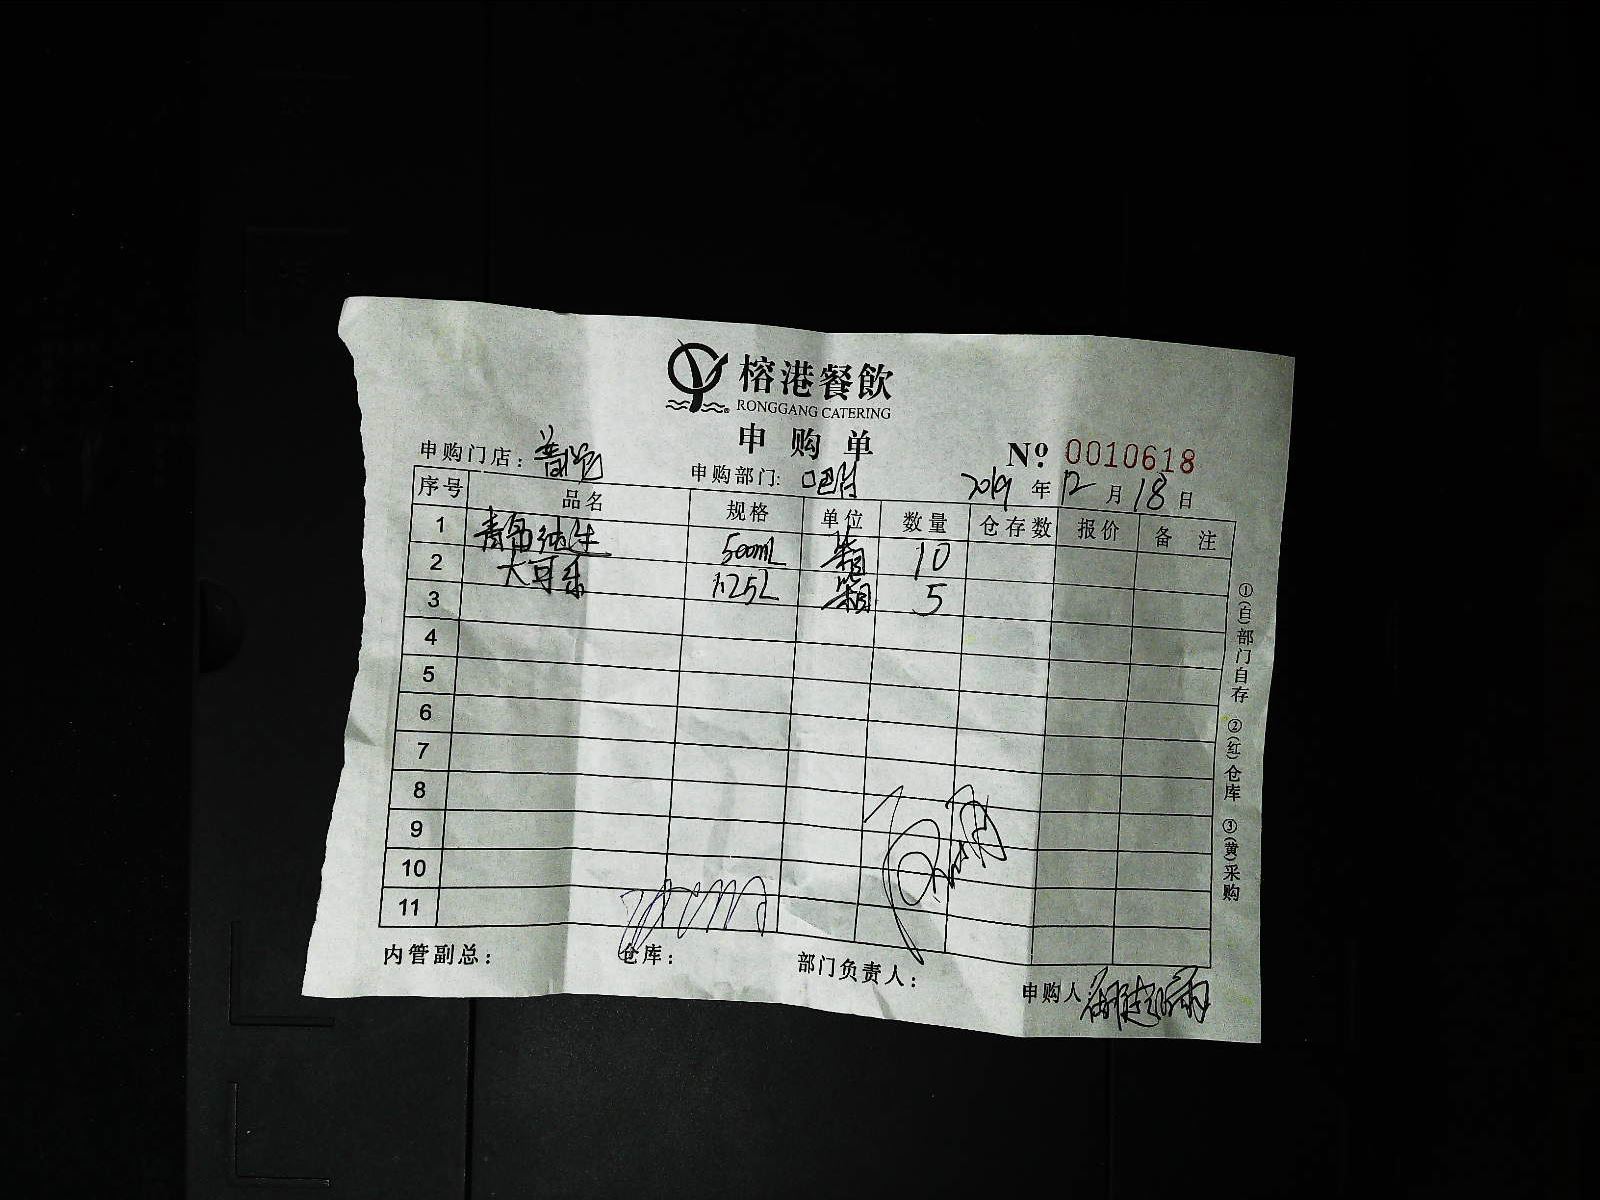 榕港餐飲
RONGGANG CATERING
申购单
№ 0010618
申购门店：普陀 申购部门：吧台 2019年12月18日
序号 品名 规格 单位 数量 仓存数 报价 备注
1 青岛纯生 500ml 箱 10
2 大可乐 1.25L 箱 5
3
4
5
6
7
8
9
10
11
内管副总： 仓库： 部门负责人： 申购人：
①(白)部门自存 ②(红)仓库 ③(黄)采购